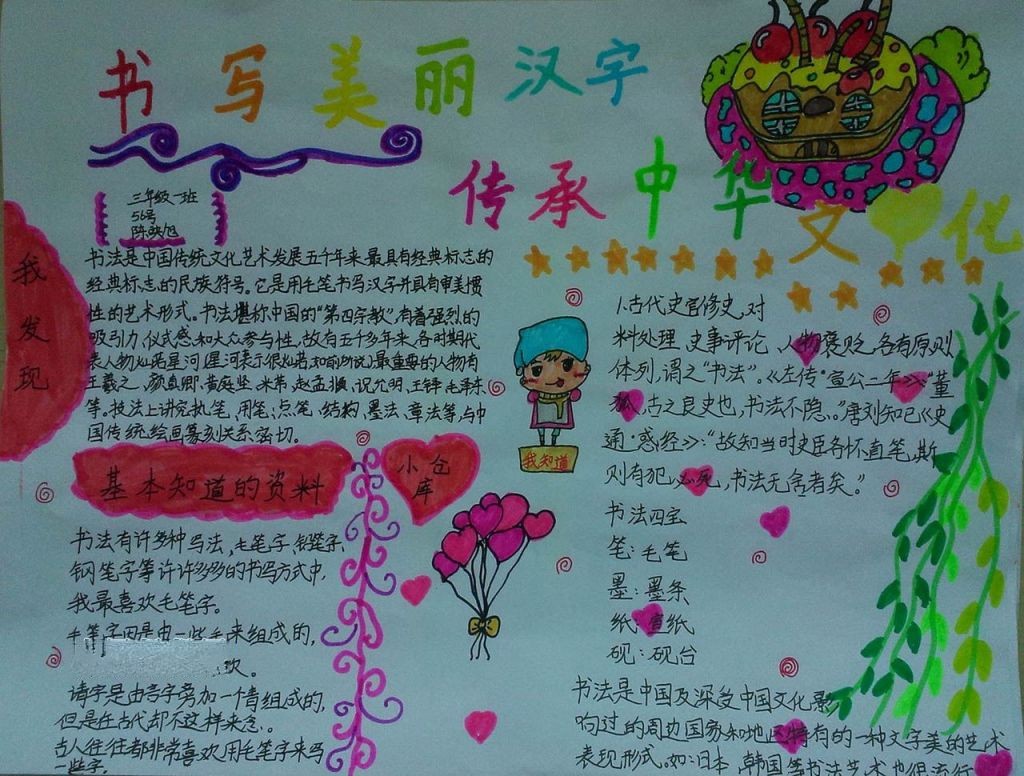 书写美丽汉字
传承中华文化
三年级一班
56号
陈映旭
我发现
书法是中国传统文化艺术发展五千年来最具有经典标志的
经典标志的民族符号。它是用毛笔书写汉字并具有审美惯
性的艺术形式。书法堪称中国的“第四宗教”,有着强烈的
吸引力,仪式感和大众参与性,故有五千多年来,各时期代
表人物灿若星河
王羲之、颜真卿、黄庭坚、米芾、赵孟頫、祝允明、王铎、毛泽东、
等。技法上讲究执笔、用笔、点笔、结构、墨法、章法等,与中
国传统绘画篆刻关系密切。
基本知道的资料
小仓库
书法有许多种写法,毛笔字、铅笔字、
钢笔字等许许多多的书写方式中,
我最喜欢毛笔字。
来组成的,
欢。
请字是由言字旁加一个青组成的,
但是在古代却不这样来念。
古人往往都非常喜欢用毛笔字来写
一些字。
我知道
1.古代史官修史,对
料处理、史事评论、人物褒贬,各有原则
体列,谓之“书法”。《左传·宣公二年》:“董
狐,古之良史也,书法不隐。”唐刘知己《史
通·惑经》:“故知当时史臣各怀直笔,斯
则有犯必死,书法无舍者矣。”
书法四宝
笔:毛笔
墨:墨条
纸:宣纸
砚:砚台
书法是中国及深受中国文化影
响过的周边国家和地区特有的一种文字美的艺术
表现形式。如:日本、韩国等书法艺术也很流行